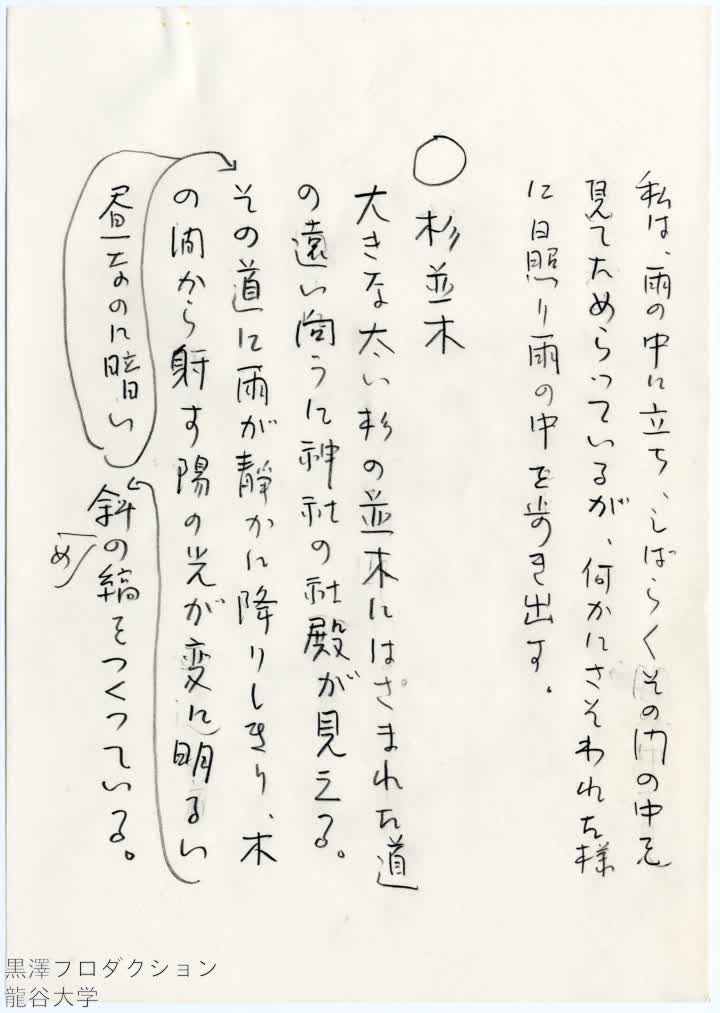 私は、雨の中に立ち、しばらくその門の中を
見てためらっているが、何かにさそわれた様
に日照り雨の中を歩き出す。
○
杉並木
大きな太い杉の並木にはさまれた道
の遠い向うに神社の社殿が見える。
その道に雨が静かに降りしきり、木
の間から射す陽の光が変に明るい
昼なのに暗い
斜の縞をつくっている。
め
黒澤プロダクション
龍谷大学